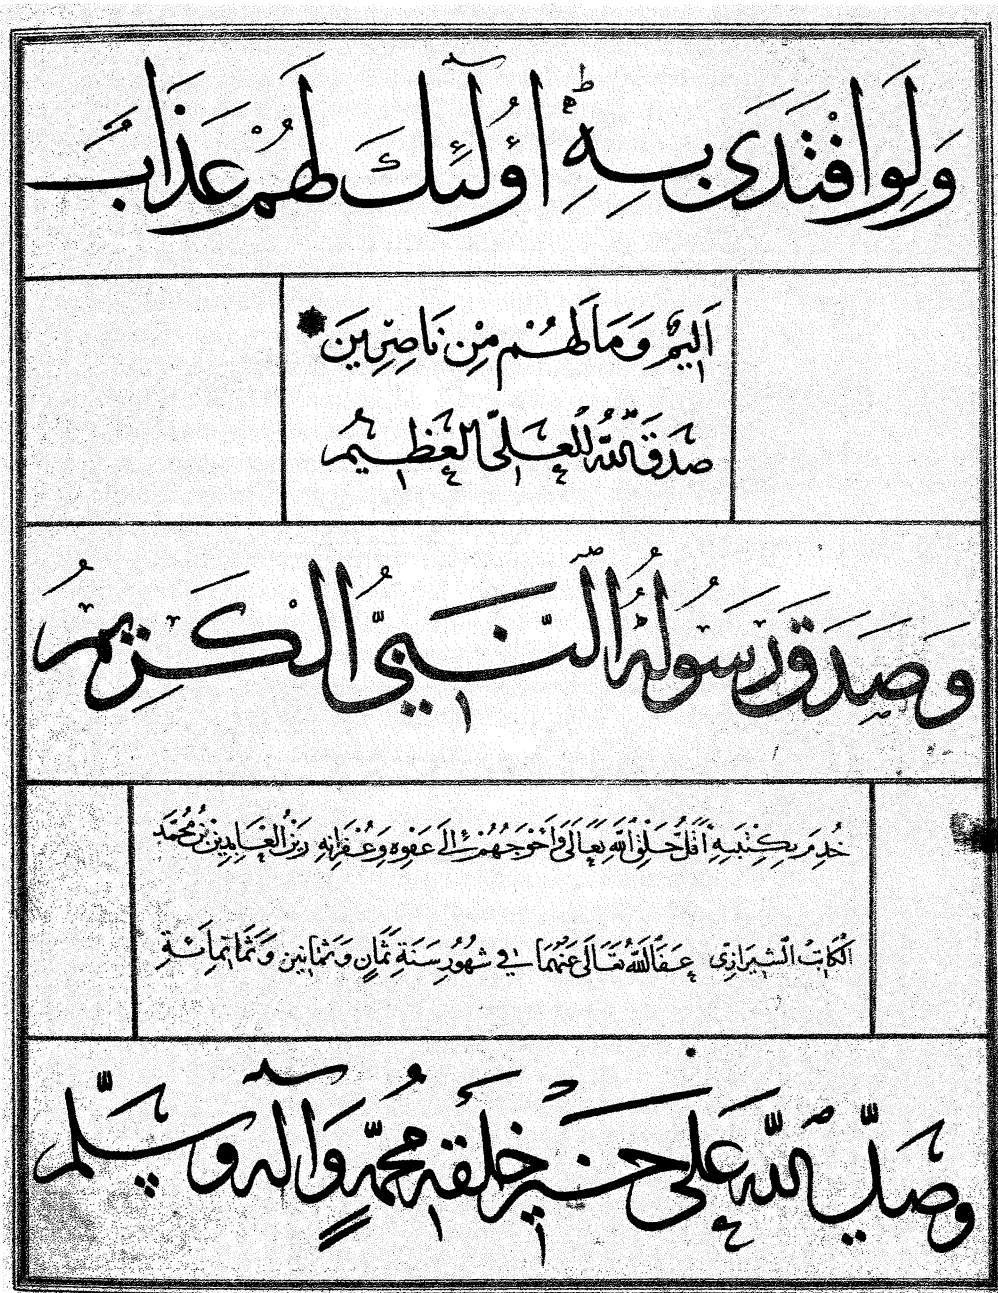 وَلَوِ افْتَدَىٰ بِهِ ۗ أُولَٰئِكَ لَهُمْ عَذَابٌ
أَلِيمٌ وَمَا لَهُمْ مِنْ نَاصِرِينَ
صَدَقَ اللَّهُ الْعَلِيُّ الْعَظِيمُ
وَصَدَقَ رَسُولُهُ النَّبِيُّ الْكَرِيمُ
خُدِمَ بِكِتْبَتِهِ أَقَلُّ خَلْقِ اللَّهِ تَعَالَى وَأَحْوَجُهُمْ إِلَى عَفْوِهِ وَغُفْرَانِهِ زَيْنُ الْعَابِدِينَ بْنُ مُحَمَّد
الْكَاتِبُ الشِّيرَازِي عَفَا اللَّهُ تَعَالَى عَنْهُمَا فِي شُهُورِ سَنَةِ ثَمَانٍ وَثَمَانِينَ وَثَمَانِمِائَةٍ
وَصَلَّى اللَّهُ عَلَى خَيْرِ خَلْقِهِ مُحَمَّدٍ وَآلِهِ وَسَلَّم